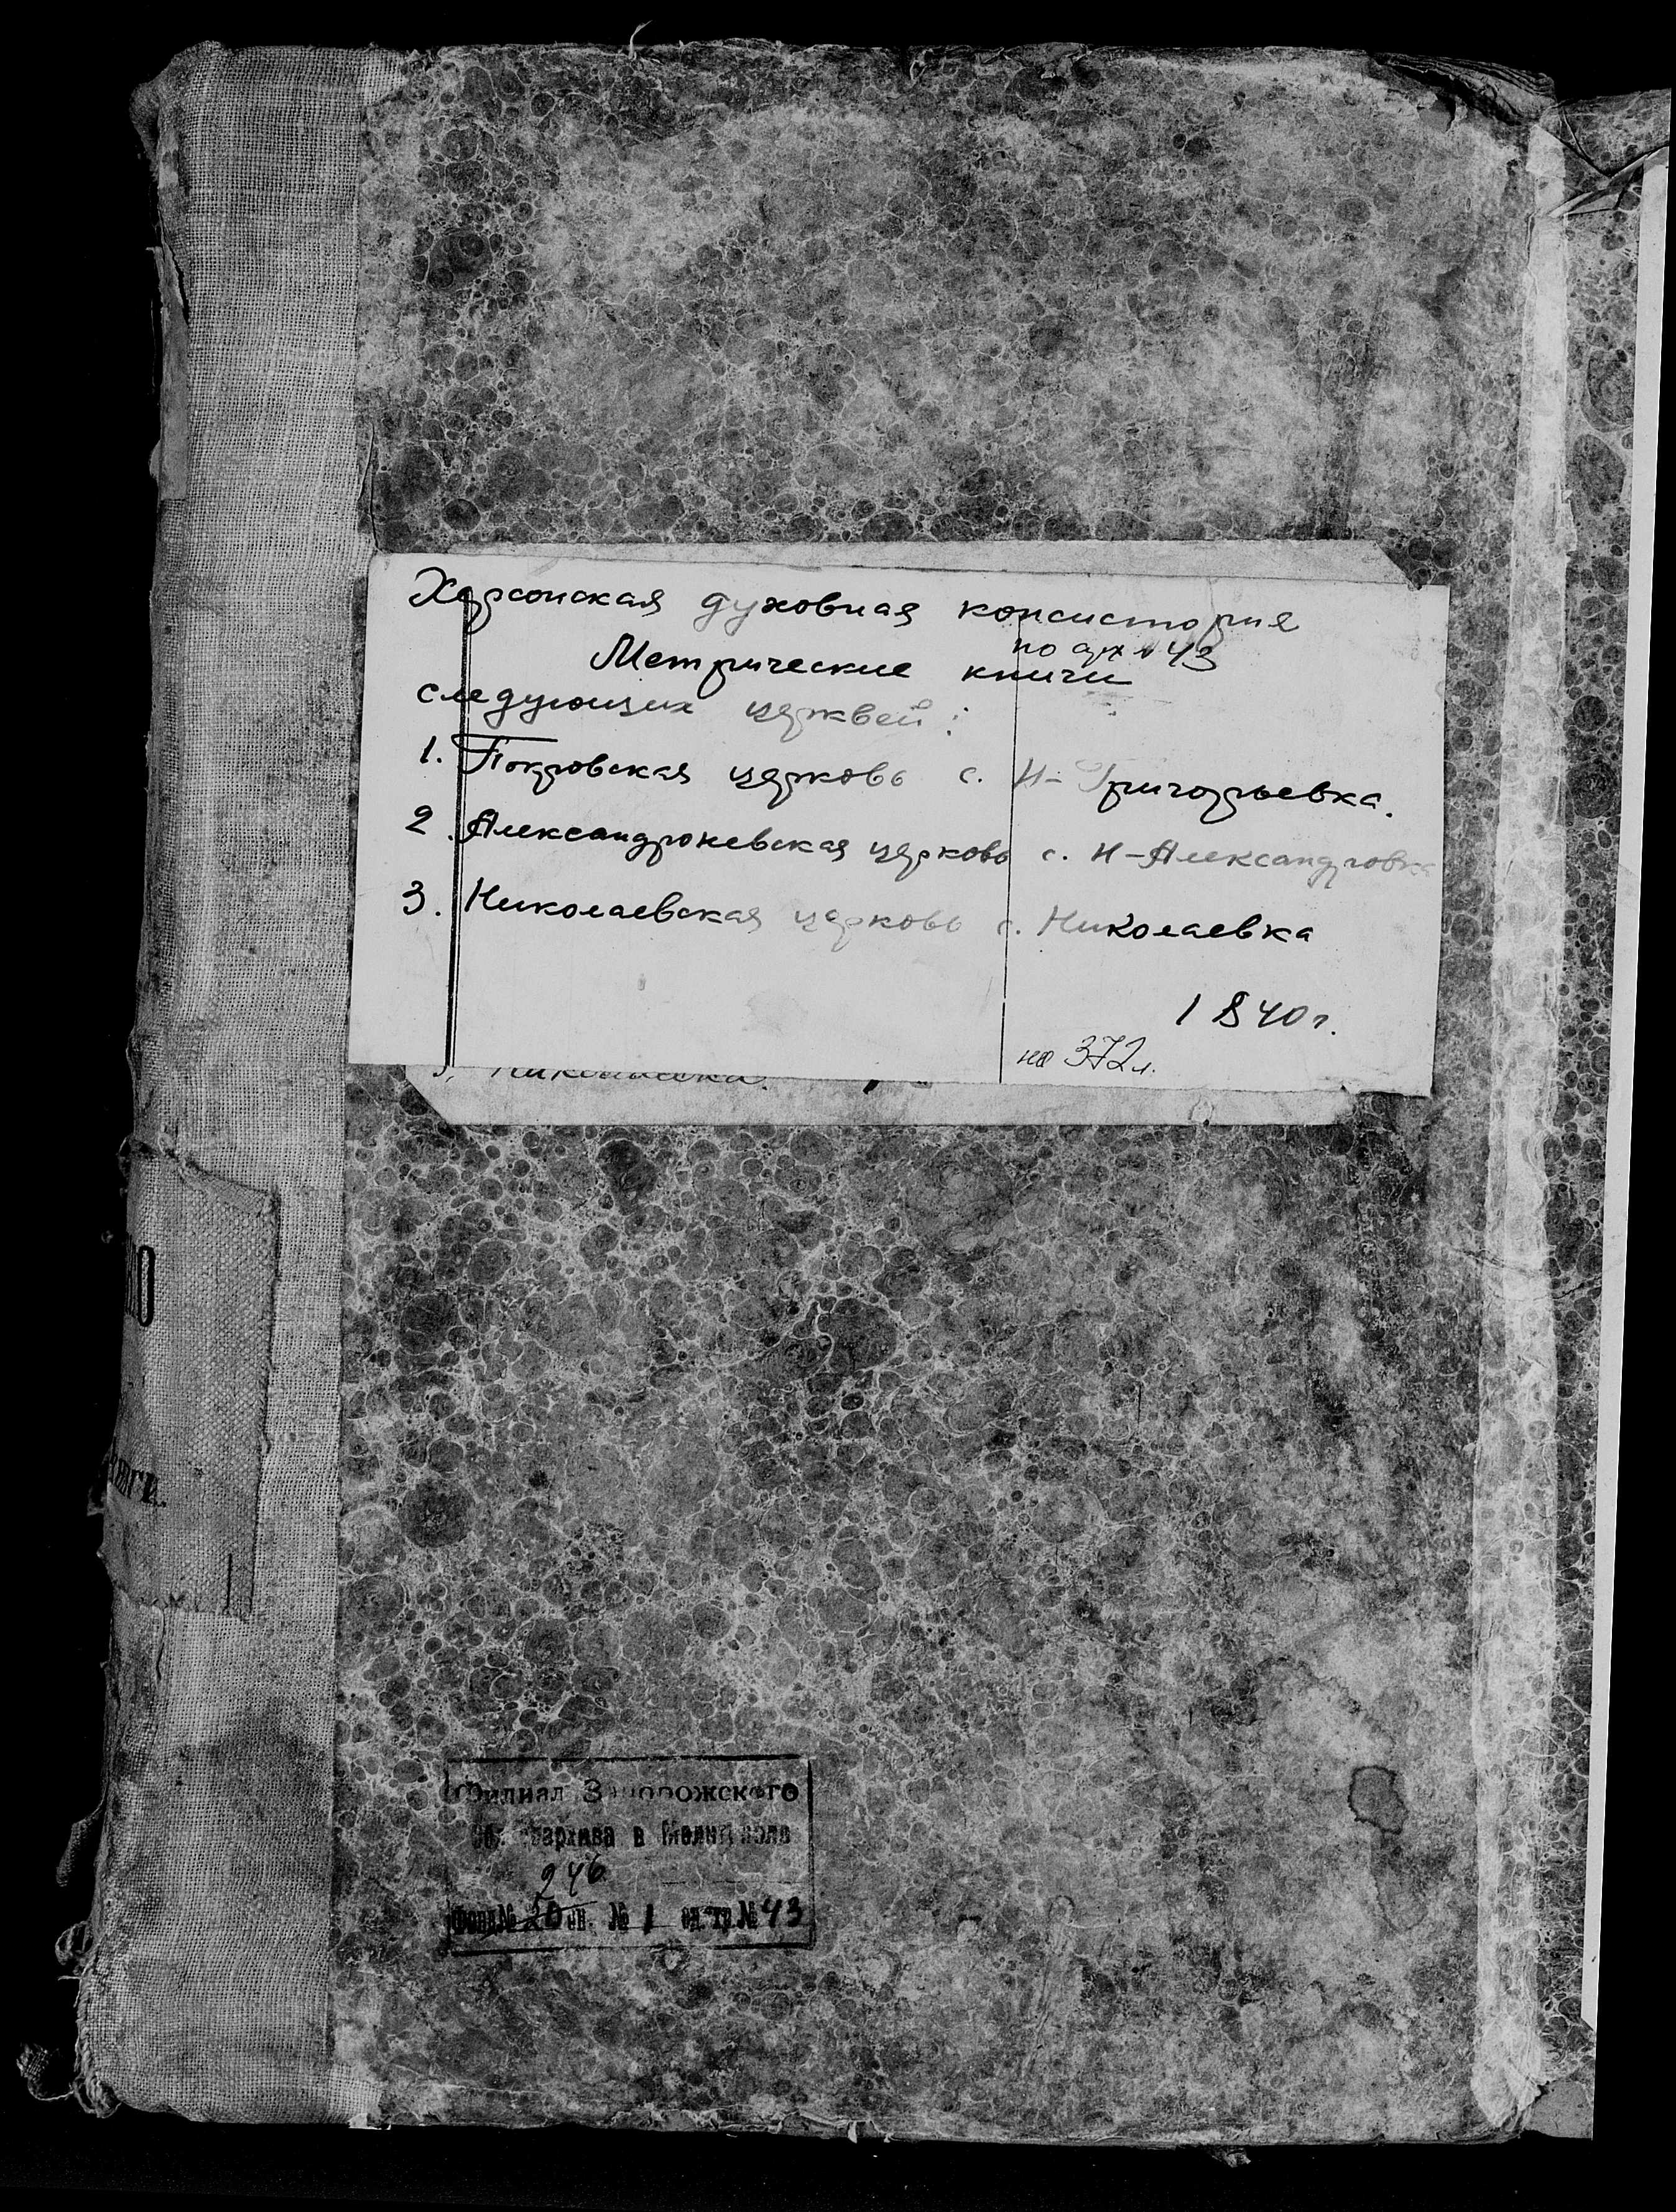 Херсонская духовная консистория
по арх № 43
Метрические книги
следующих церквей:
1. Покровская церковь с. Н-Григорьевка.
2. Александроневская церковь с. Н-Александровка
3. Николаевская церковь с. Николаевка
1840г.
на 372 л.
Николаевка.
книги.
Филиал Запорожского
облгосархива в Мелитополе
246
Фонд № 20 оп. № 1 ед. хр. № 43